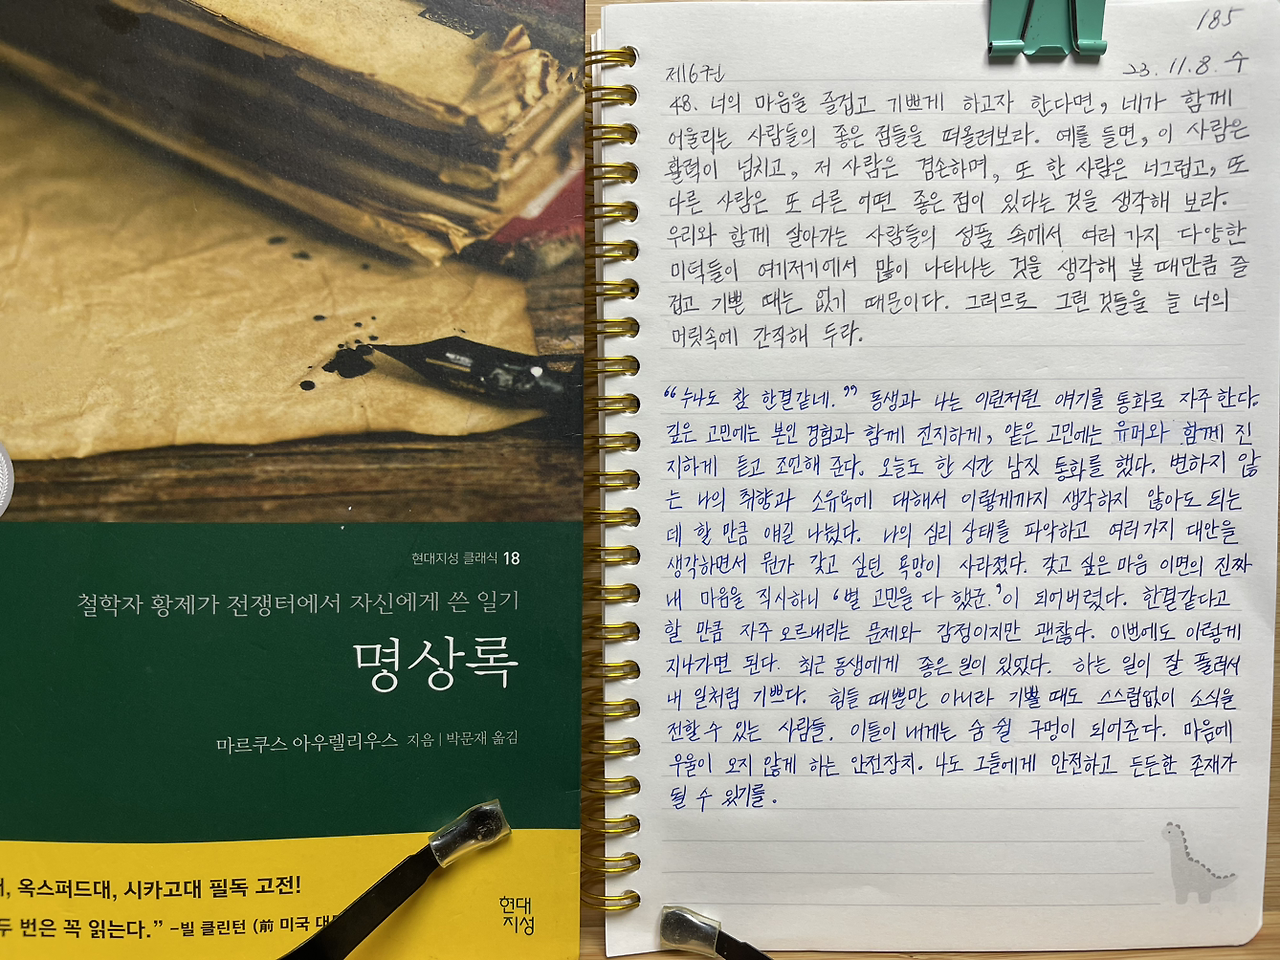 현대지성 클래식 18
철학자 황제가 전쟁터에서 자신에게 쓴 일기
명상록
마르쿠스 아우렐리우스 지음 | 박문재 옮김
옥스퍼드대, 시카고대 필독 고전!
두 번은 꼭 읽는다.” –빌 클린턴 (前 미국 대
현대
지성
185
제6권 23. 11. 8. 수
48. 너의 마음을 즐겁고 기쁘게 하고자 한다면, 네가 함께
어울리는 사람들의 좋은 점들을 떠올려보라. 예를 들면, 이 사람은
활력이 넘치고, 저 사람은 겸손하며, 또 한 사람은 너그럽고, 또
다른 사람은 또 다른 어떤 좋은 점이 있다는 것을 생각해 보라.
우리와 함께 살아가는 사람들의 성품 속에서 여러 가지 다양한
미덕들이 여기저기에서 많이 나타나는 것을 생각해 볼 때만큼 즐
겁고 기쁜 때는 없기 때문이다. 그러므로 그런 것들을 늘 너의
머릿속에 간직해 두라.
“누나도 참 한결같네.” 동생과 나는 이런저런 얘기를 통화로 자주 한다.
깊은 고민에는 본인 경험과 함께 진지하게, 얕은 고민에는 유머와 함께 진
지하게 듣고 조언해 준다. 오늘도 한 시간 남짓 통화를 했다. 변하지 않
는 나의 취향과 소유욕에 대해서 이렇게까지 생각하지 않아도 되는
데 할 만큼 얘길 나눴다. 나의 심리 상태를 파악하고 여러가지 대안을
생각하면서 뭔가 갖고 싶던 욕망이 사라졌다. 갖고 싶은 마음 이면의 진짜
내 마음을 직시하니 ‘별 고민을 다 했군.’이 되어버렸다. 한결같다고
할 만큼 자주 오르내리는 문제와 감정이지만 괜찮다. 이번에도 이렇게
지나가면 된다. 최근 동생에게 좋은 일이 있었다. 하는 일이 잘 풀려서
내 일처럼 기쁘다. 힘들 때뿐만 아니라 기쁠 때도 스스럼없이 소식을
전할 수 있는 사람들. 이들이 내게는 숨 쉴 구멍이 되어준다. 마음에
우울이 오지 않게 하는 안전장치. 나도 그들에게 안전하고 든든한 존재가
될 수 있기를.